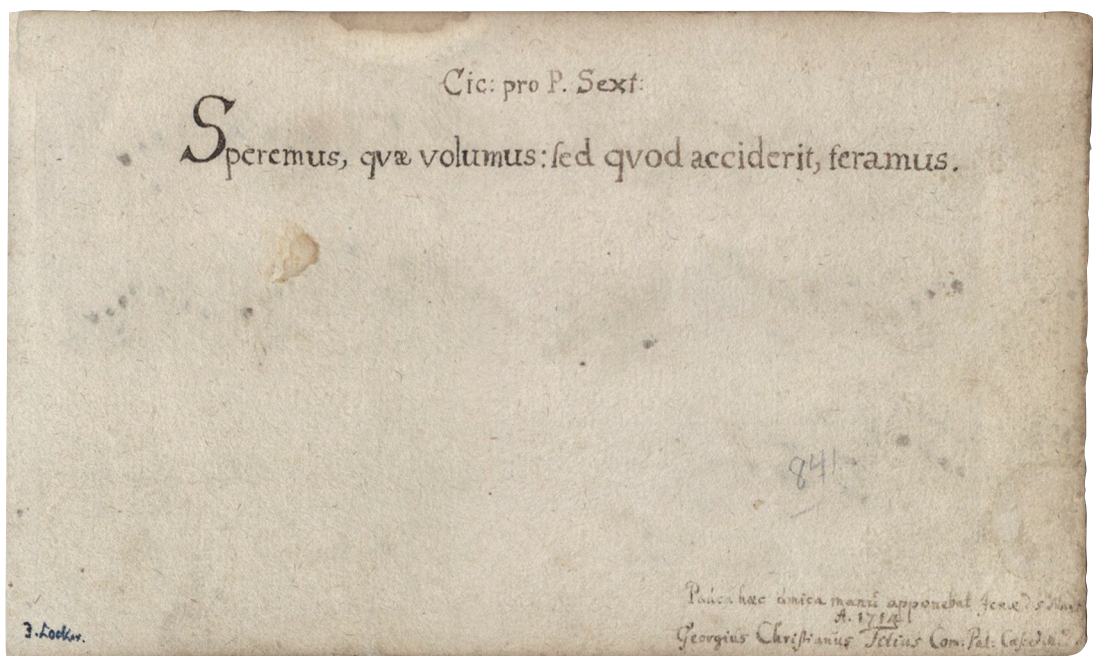 Cic: pro P. Sext:
Speremus, qvæ volumus: ſed qvod acciderit, feramus.
841
Pauca hæc amica manū apponebat Jenæ d 5
A. 1714
Georgius Christianus Com: Pal: Cæs:
J. Locker.